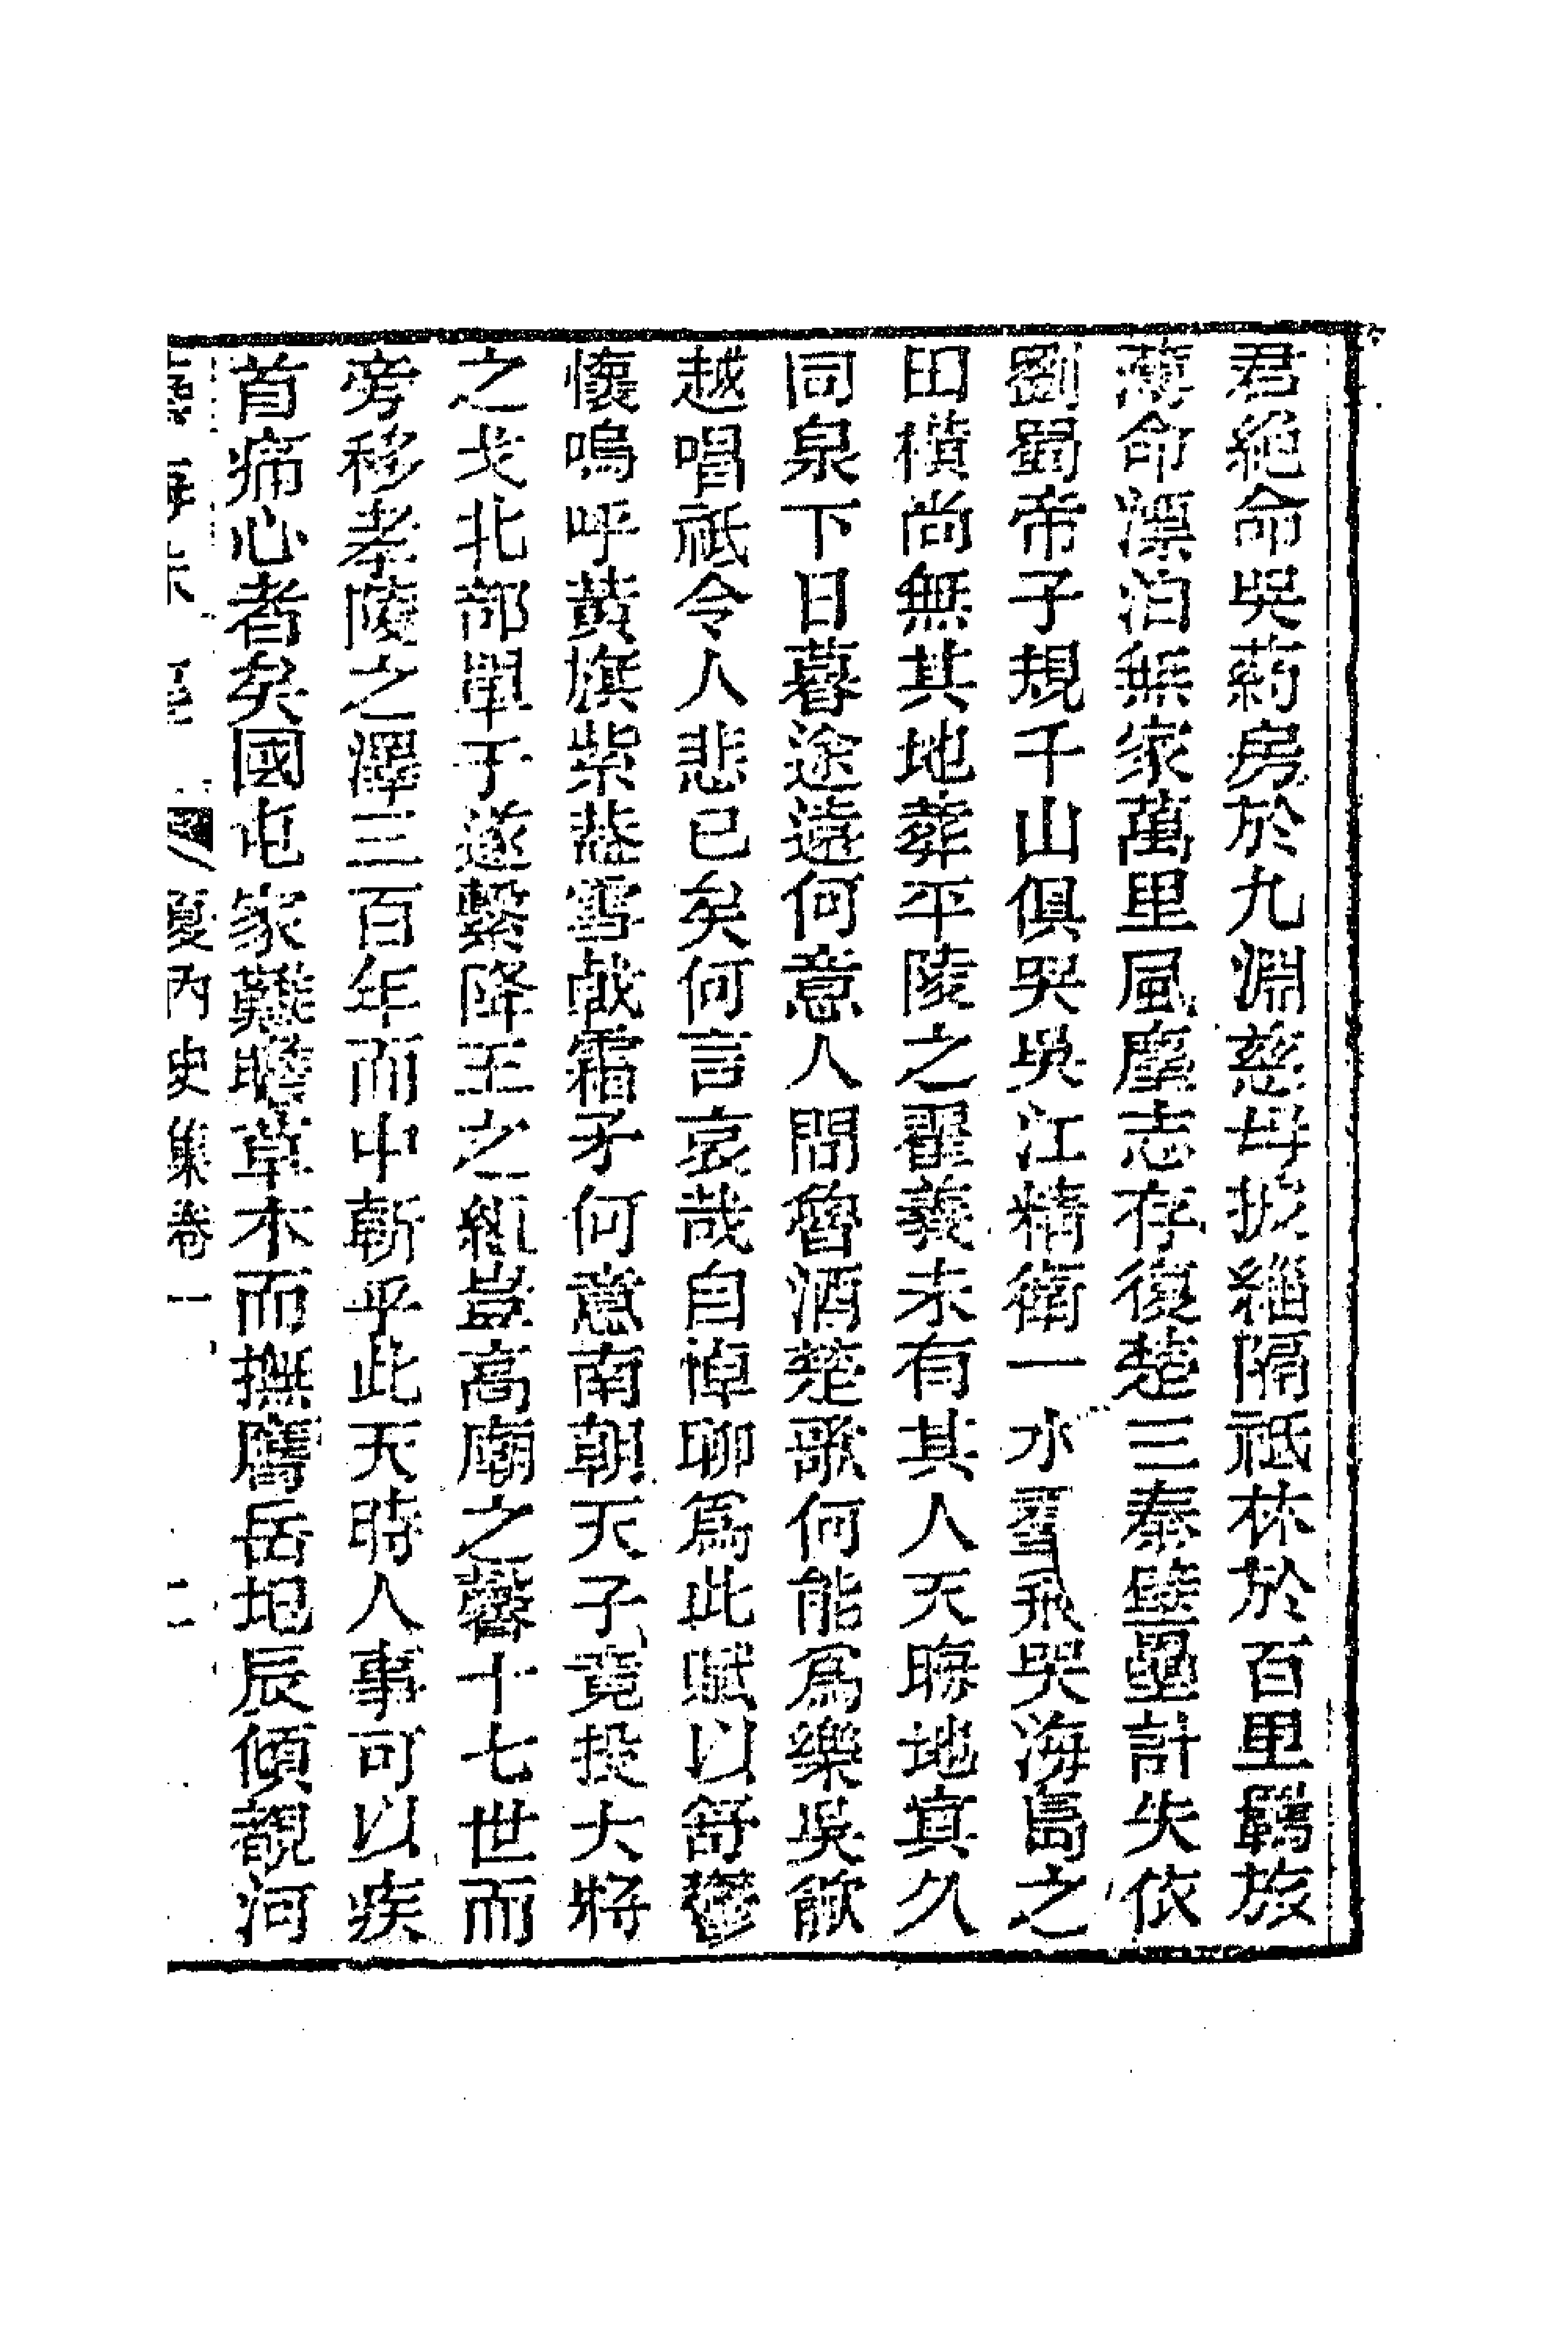 君絶命哭葯房於九淵慈母披緇隔祗林於百里羈旅
薄命漂泊無家萬里風塵志存復楚三秦壁壘計失依
劉蜀帝子規千山俱哭吳江精衛一水羣飛哭海島之
田橫尚無其地葬平陵之翟義未有其人天晦地寘久
同泉下日暮途遠何意人間魯酒楚歌何能爲樂吳歈
越唱祗令人悲已矣何言哀哉自悼聊爲此賦以舒鬱
懷嗚呼黃旗紫蓋雪戟霜矛何意南朝天子竟投大將
之戈北部單于遂繫降王之組豈高廟之馨十七世而
旁移孝陵之澤三百年而中斬乎此天時人事可以疾
首痛心者矣國屯家難瞻草木而撫膺岳圯辰傾覩河
夏內史集卷一 二